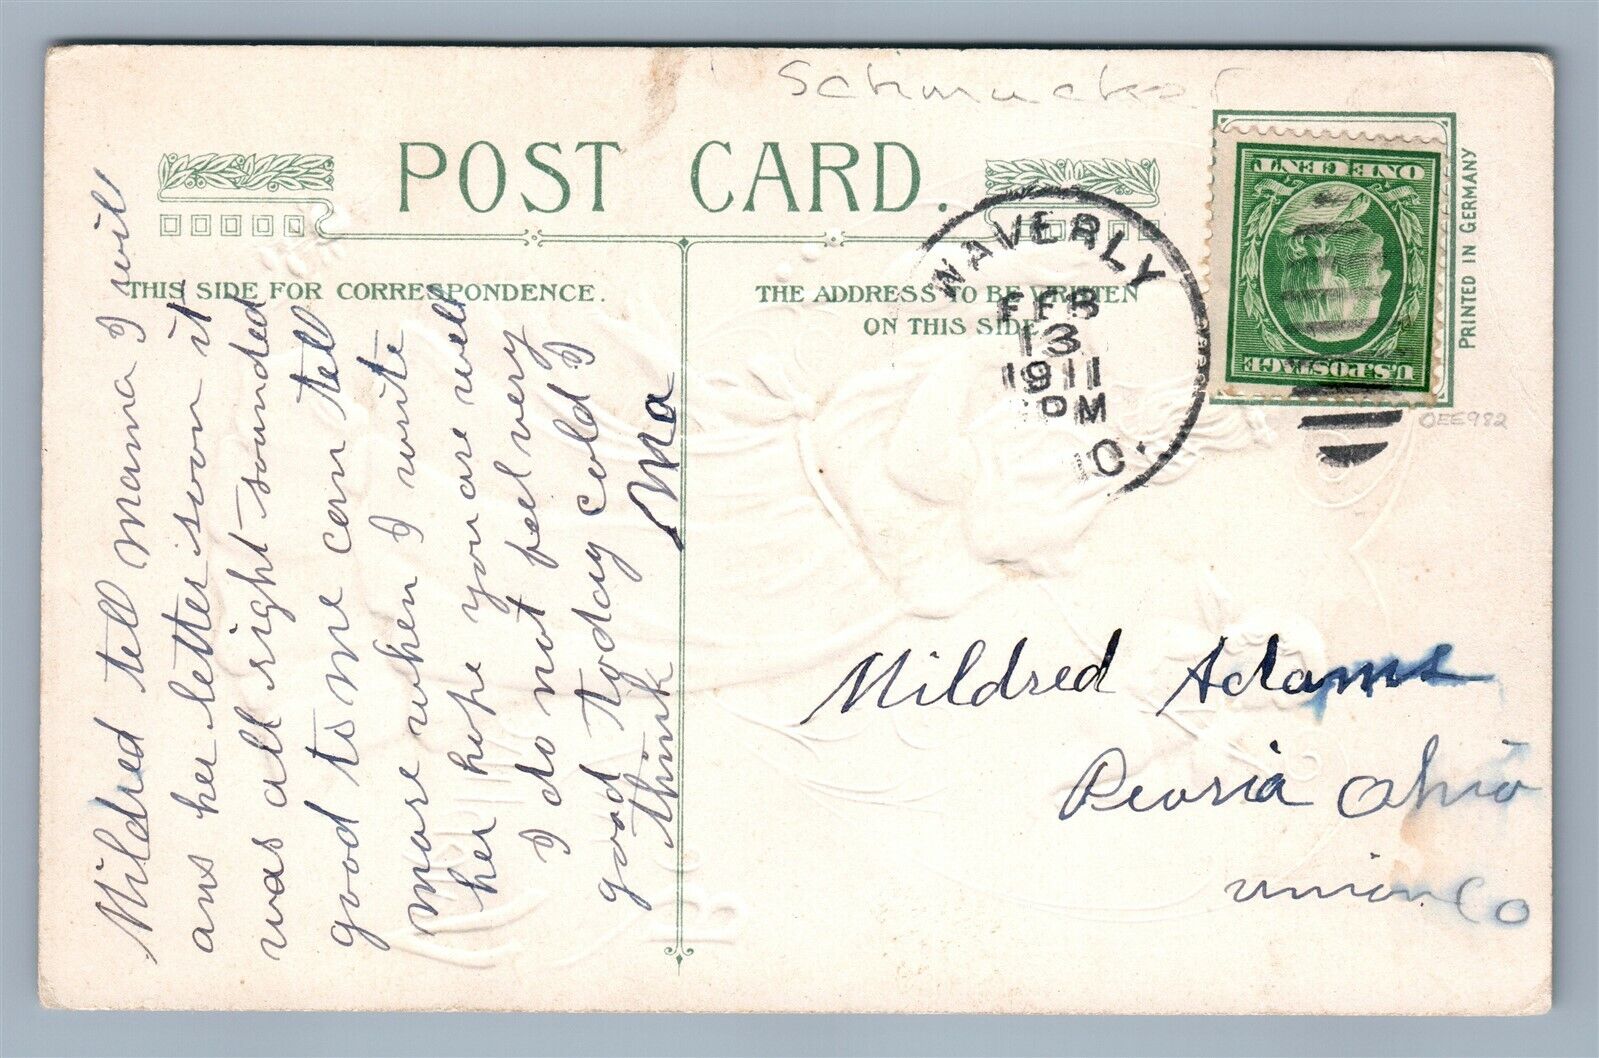 Schmucker
POST CARD.
THIS SIDE FOR CORRESPONDENCE.
THE ADDRESS TO BE WRITTEN
ON THIS SIDE
WAVERLY
FEB
13
1911
PM
O.
ONE CENT
U.S. POSTAGE
PRINTED IN GERMANY
OEE982
Mildred tell mama I will
ans her letter soon it
was all right sounded
good to me can tell
more when I write
her hope you are well
I do not feel very
good today cold I
think Ma
Mildred Adams
Peoria Ohio
Union Co